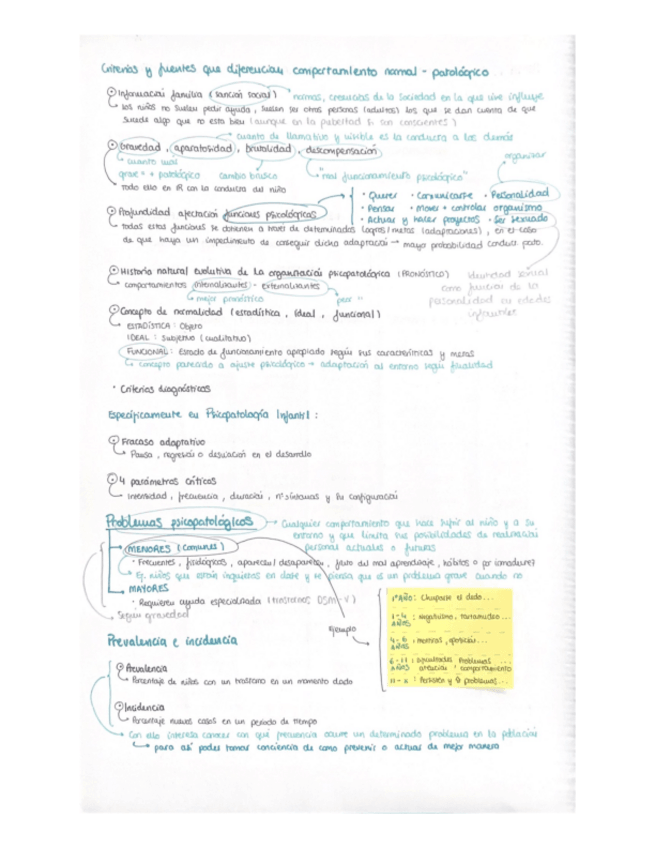 Criterios y fuentes que diferencian comportamiento normal - patológico
Información familia (sanción social) → normas, creencias de la sociedad en la que vive influye
los niños no suelen pedir ayuda, suelen ser otras personas (adultos) los que se dan cuenta de que
sucede algo que no esta bien (aunque en la pubertad si son conscientes)
cuanto de llamativo y visible es la conducta a los demás
Gravedad, aparatosidad, brutalidad, descompensación
organizar
cuanto mal
grave = + patológico
cambio básico
"mal funcionamiento psicológico"
todo ello en R con la conducta del niño
• Querer • Comunicarse • Personalidad
• Pensar • Mover + controlar organismo
• Actuar y hacer proyectos • Ser sexuado
Profundidad afectación funciones psicológicas
todas estas funciones se obtienen a través de determinados logros/metas (adaptaciones), en el caso
de que haya un impedimento de conseguir dicha adaptación → mayor probabilidad conduct. pato.
Historia natural evolutiva de la organización psicopatológica (PRONÓSTICO)
identidad sexual
como función de la
personalidad en edades
infantiles
comportamientos internalizantes - externalizantes
mejor pronóstico
peor "
Concepto de normalidad (estadística, ideal, funcional)
ESTADÍSTICA: Objeto
IDEAL: Subjetivo (cualitativo)
FUNCIONAL: Estado de funcionamiento apropiado según sus características y metas
concepto parecido a ajuste psicológico → adaptación al entorno según finalidad
• Criterios diagnósticos
Específicamente en Psicopatología Infantil:
Fracaso adaptativo
Pausa, regresión o desviación en el desarrollo
4 parámetros críticos
Intensidad, frecuencia, duración, nº síntomas y su configuración
Problemas psicopatológicos → Cualquier comportamiento que hace sufrir al niño y a su
entorno y que limita sus posibilidades de realización
personal actuales o futuras
MENORES (comunes)
• Frecuentes, fisiológicos, aparecen/desaparecen, fruto del mal aprendizaje, hábitos o por inmadurez
Ej. niños que están inquietos en clase y se piensa que es un problema grave cuando no
MAYORES
• Requieren ayuda especializada (trastornos DSM-V)
Según gravedad
Ejemplo
1º AÑO: Chuparse el dedo...
1-4 AÑOS: negativismo, tartamudeo...
4-6 AÑOS: mentiras,
6-11 AÑOS: dificultades problemas atención, comportamiento
Prevalencia e incidencia
Prevalencia
Porcentaje de niños con un trastorno en un momento dado
Incidencia
Porcentaje nuevos casos en un periodo de tiempo
Con ello interesa conocer con qué frecuencia ocurre un determinado problema en la población
para así poder tomar conciencia de como prevenir o actuar de mejor manera